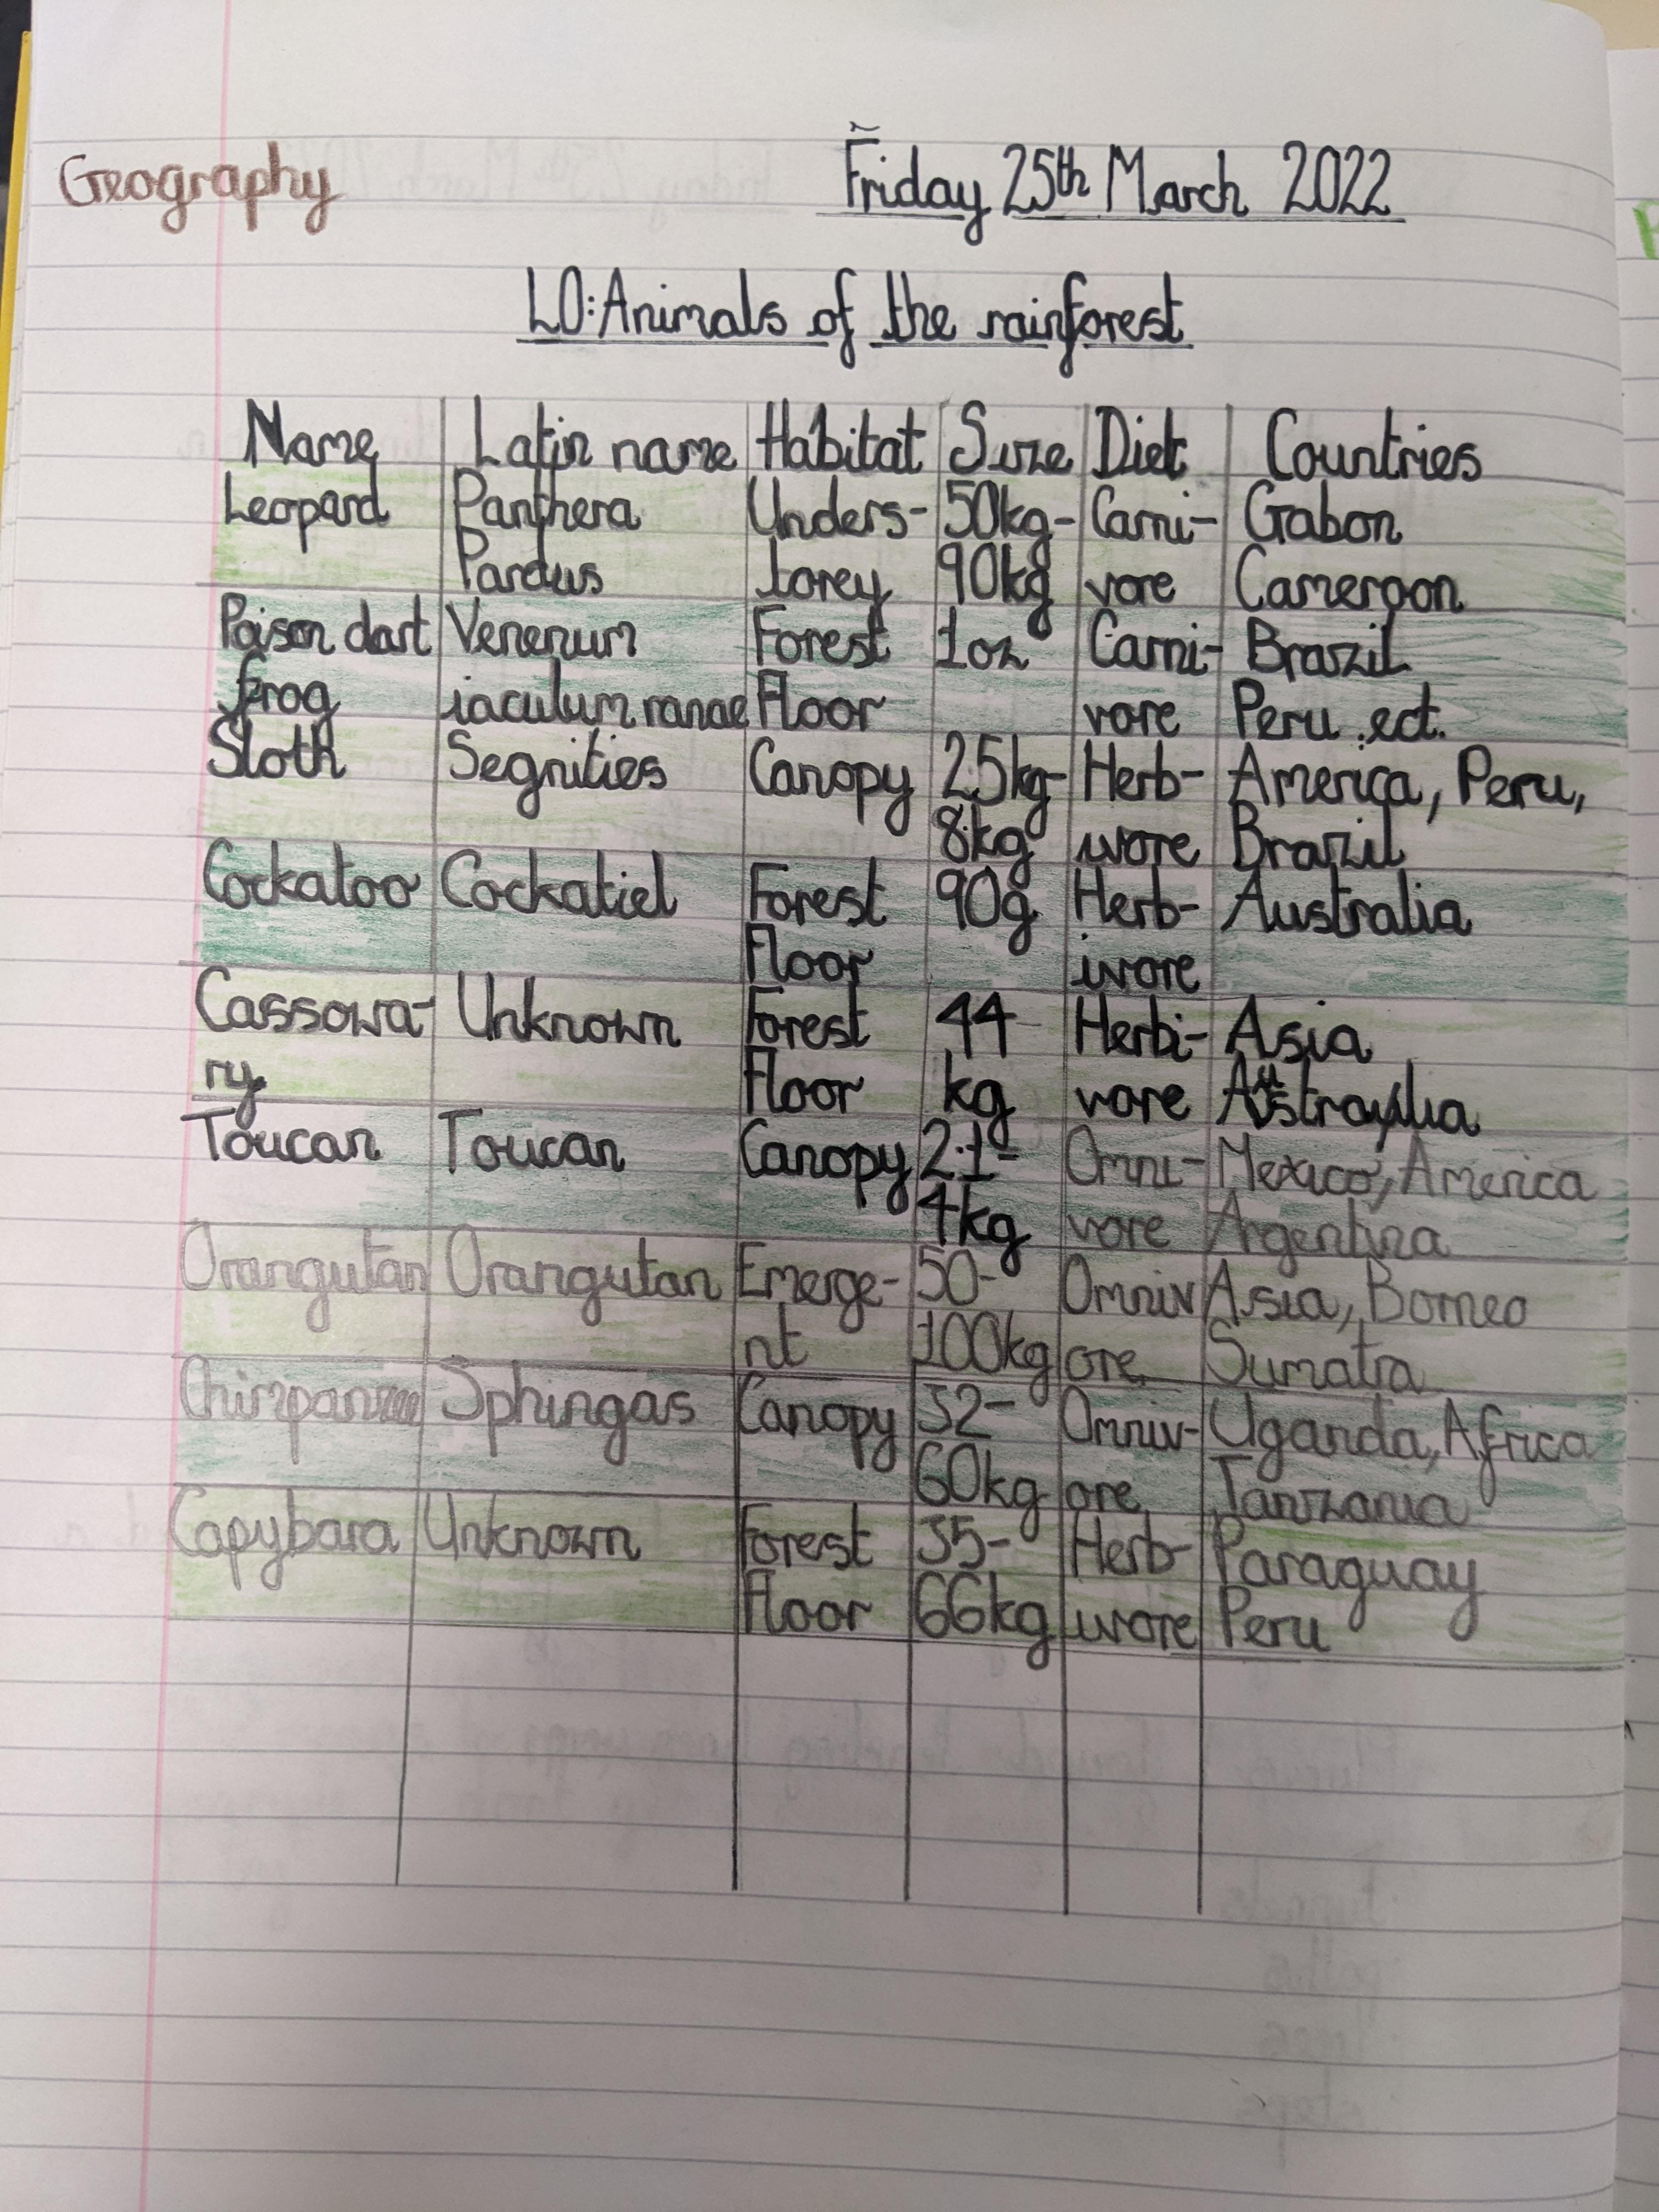 Geography
Friday 25th March 2022
LO: Animals of the rainforest
Name Latin name Habitat Size Diet Countries
Leopard Panthera Unders- 50kg- Carni- Gabon
Pardus torey 90kg vore Cameroon
Poison dart Venenum Forest 1oz Carni- Brazil
frog iaculum ranae Floor vore Peru ect.
Sloth Segnities Canopy 2.5kg- Herb- America, Peru,
8kg ivore Brazil
Cockatoo Cockatiel Forest 90g Herb- Australia
Floor ivore
Cassowa- Unknown Forest 44 Herbi- Asia
ry Floor kg vore Australia
Toucan Toucan Canopy 2.1- Omni- Mexico, America
4kg vore Argentina
Orangutan Orangutan Emerge- 50- Omniv Asia, Borneo
nt 100kg ore Sumatra
Chimpanzee Sphingas Canopy 32- Omniv- Uganda, Africa
60kg ore Tanzania
Capybara Unknown Forest 35- Herb- Paraguay
Floor 66kg ivore Peru